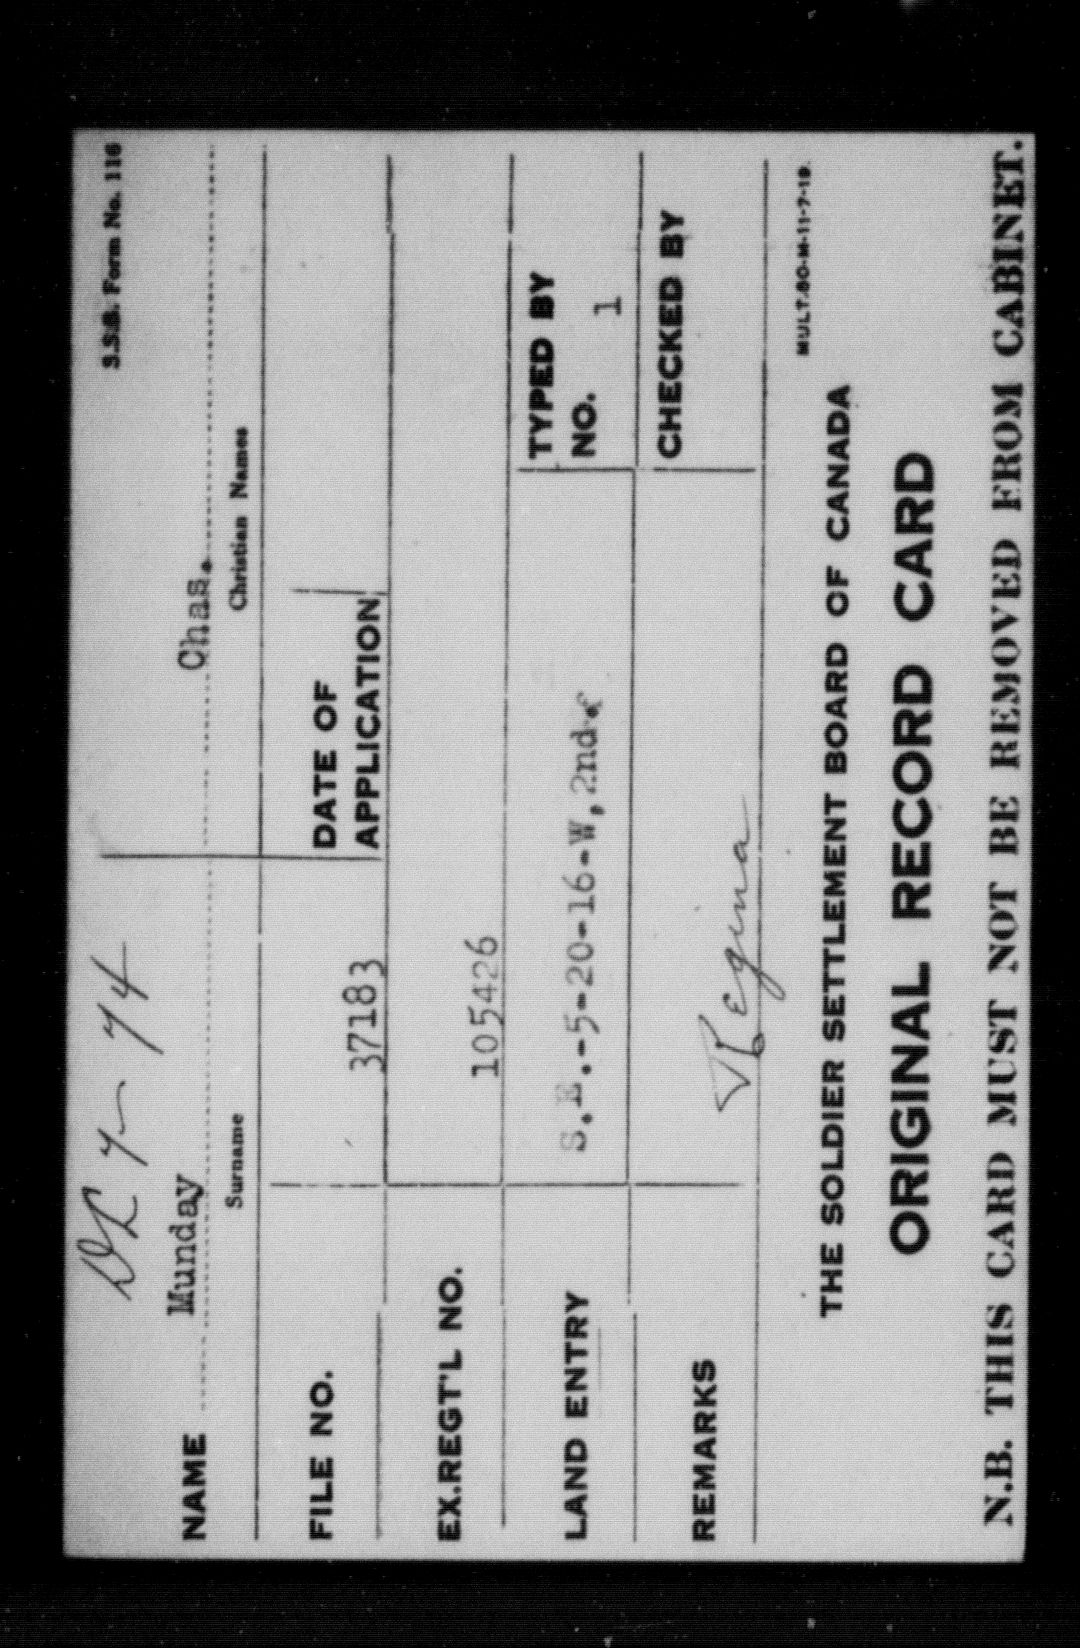 S.S.B. Form No. 116
NAME Munday Chas.
Surname Christian Names
FILE NO. 37183 DATE OF
APPLICATION
EX.REGT'L NO. 105426
LAND ENTRY S.E.-5-20-16-W,2nd
TYPED BY
NO. 1
REMARKS Regina
CHECKED BY
MULT.60-M-11-7-19.
THE SOLDIER SETTLEMENT BOARD OF CANADA
ORIGINAL RECORD CARD
N.B. THIS CARD MUST NOT BE REMOVED FROM CABINET.